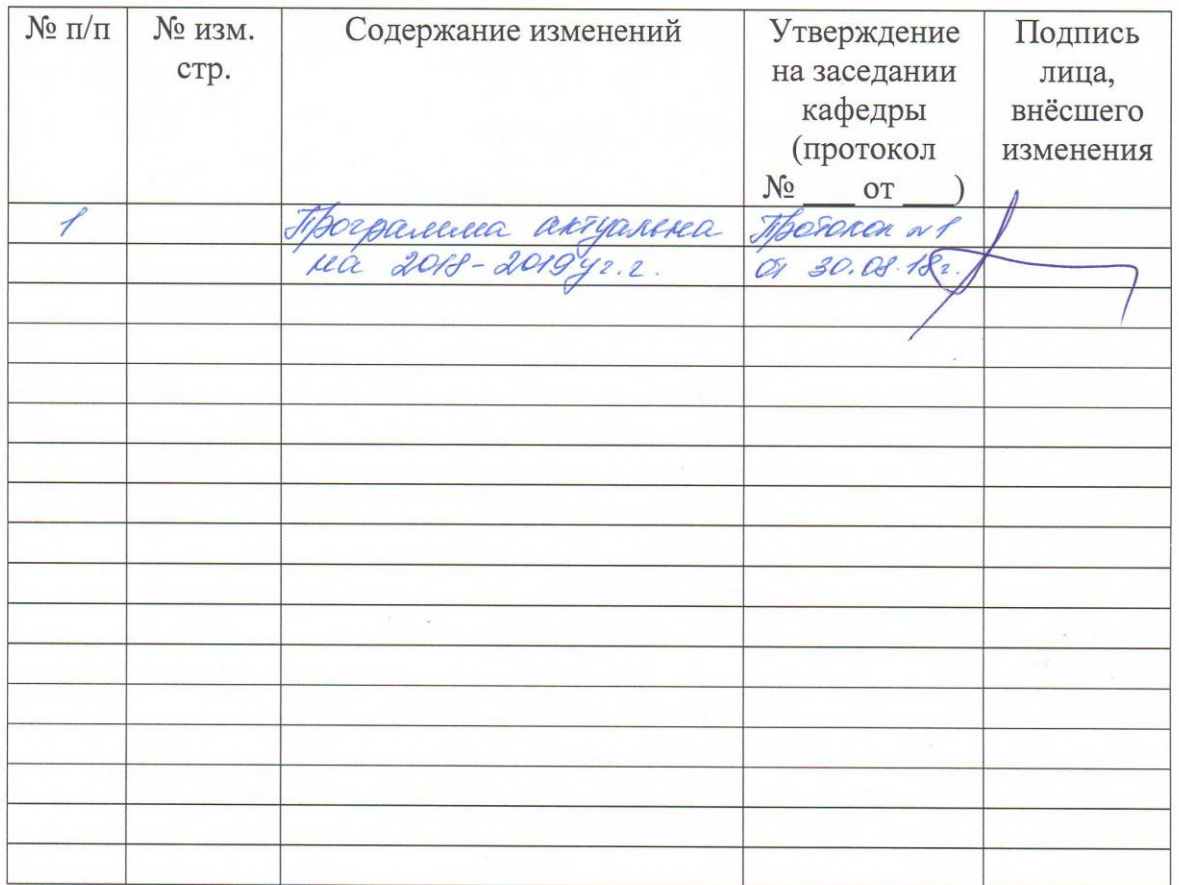 № п/п № изм. стр. Содержание изменений Утверждение на заседании кафедры (протокол № ____ от ____) Подпись лица, внёсшего изменения
1 Программа актуальна Протокол №1
на 2018-2019 уг.г. от 30.08.18г.